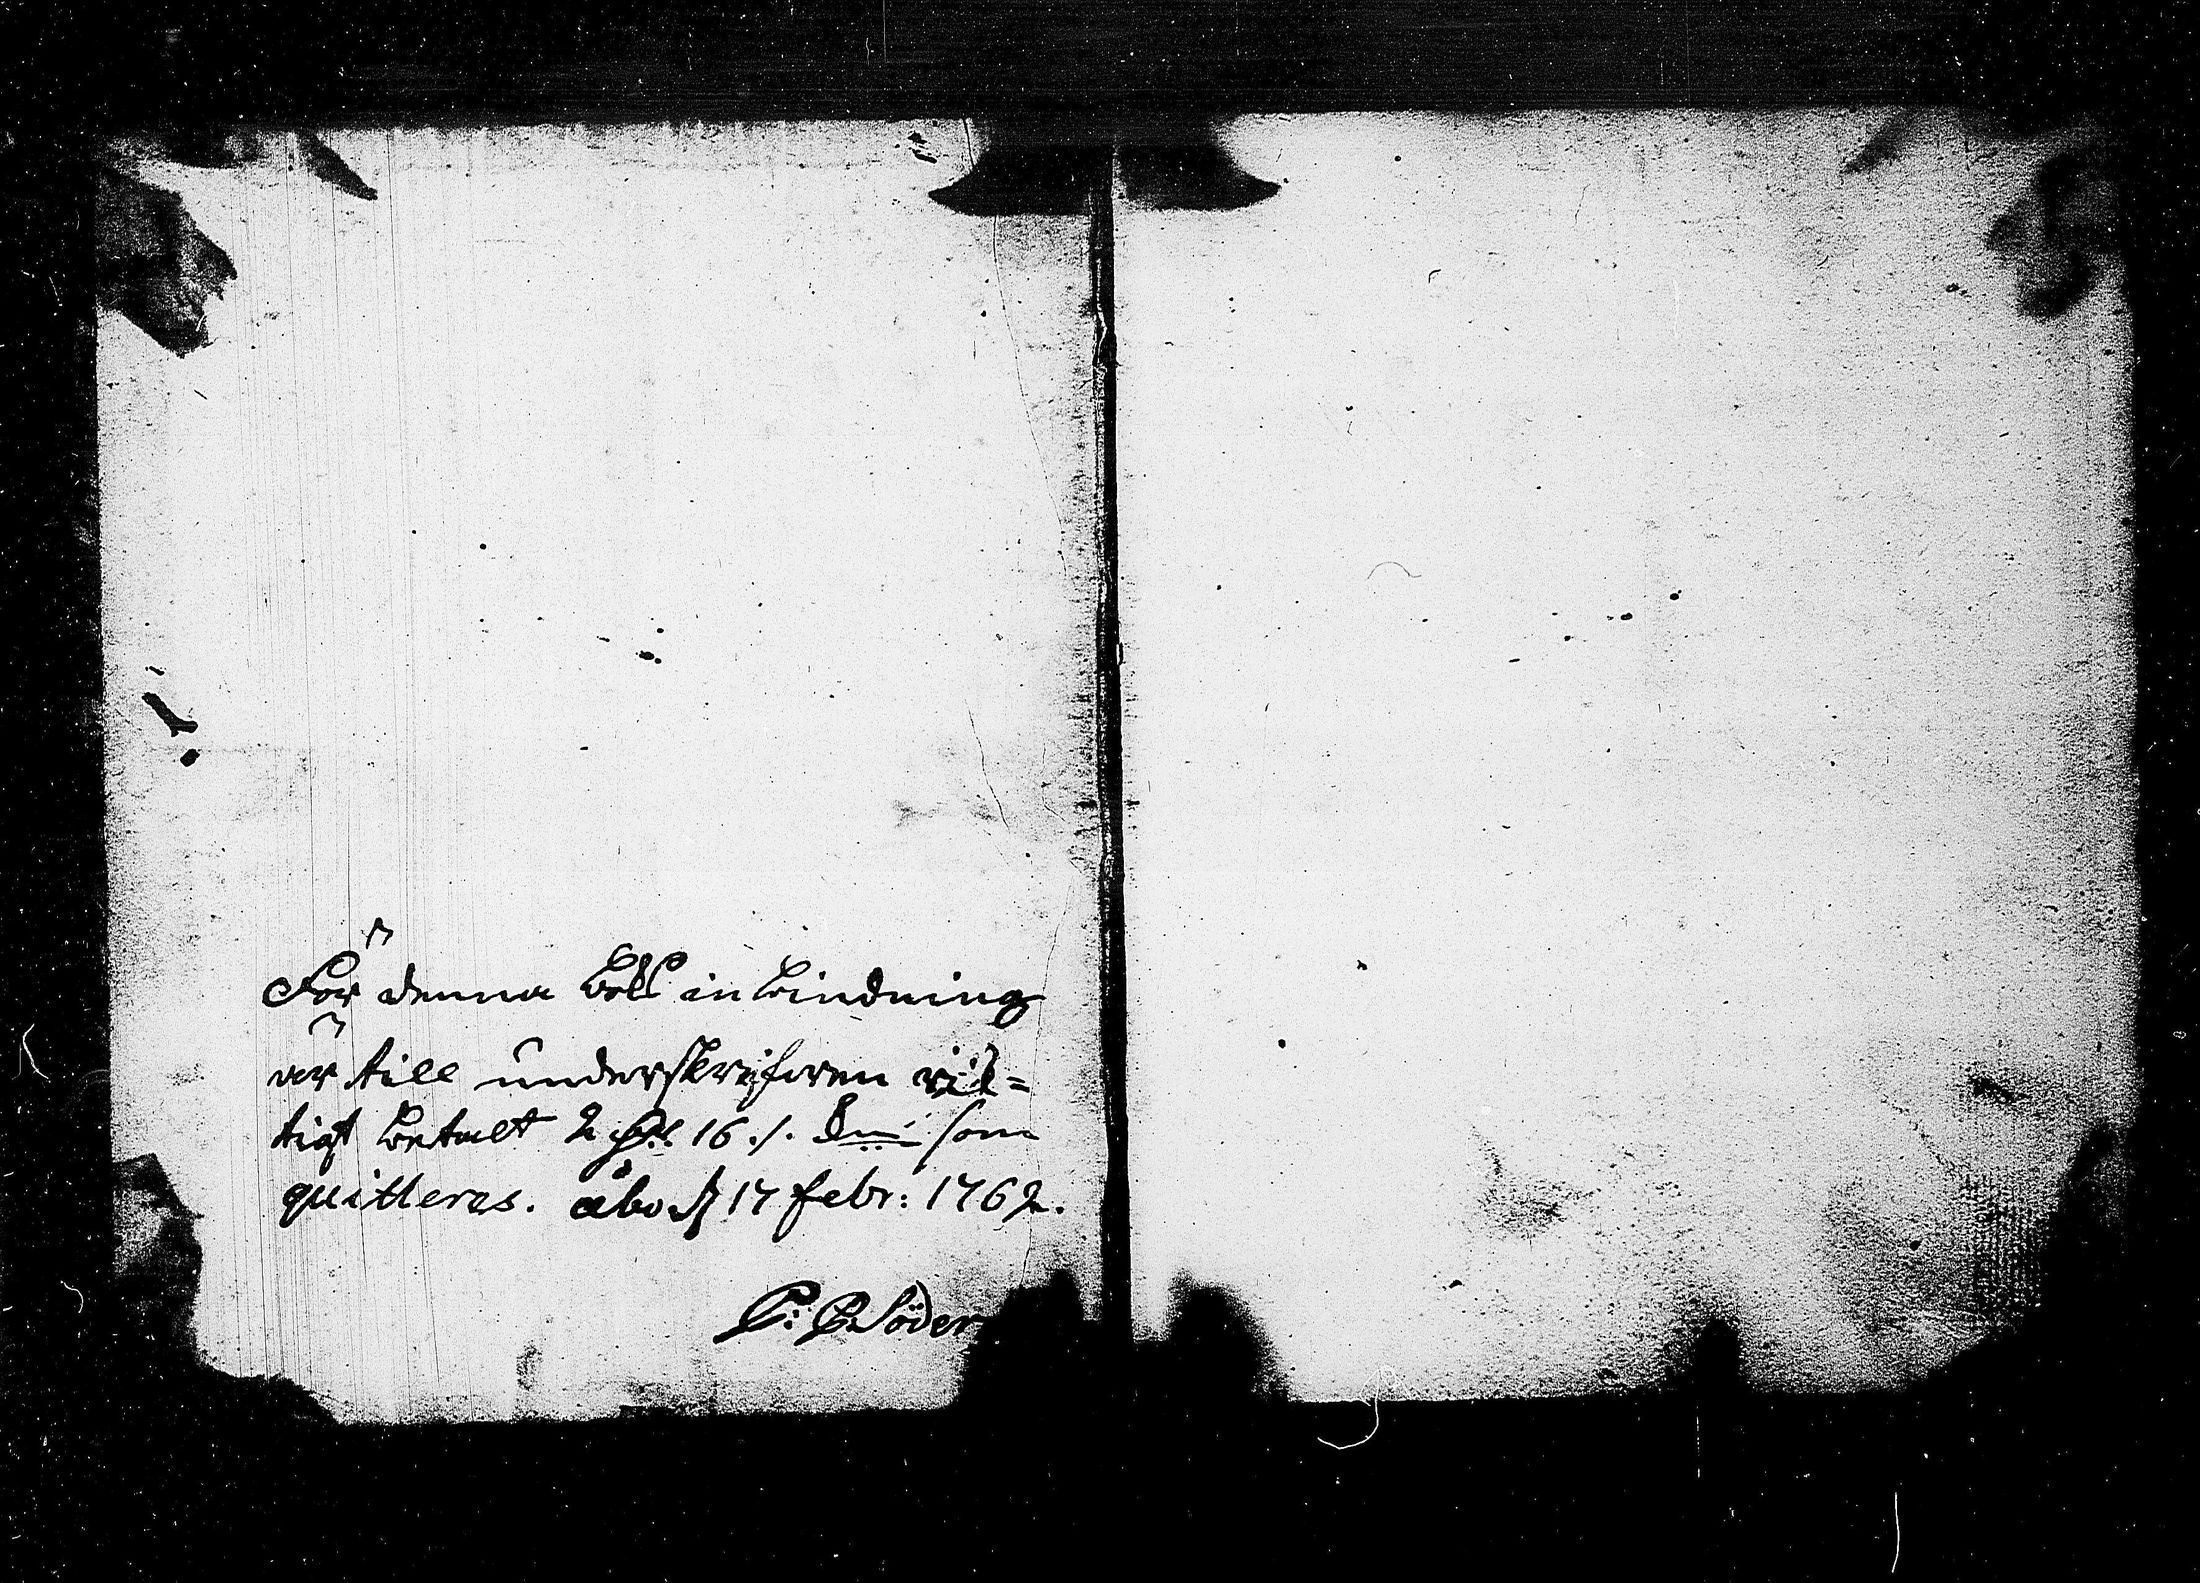 För denna bok inbindning
är till underskrifwen rik=
tigt betalt 2 16 ./. som
quitteras. åbo d 17 febr: 1762.
C: C Söder